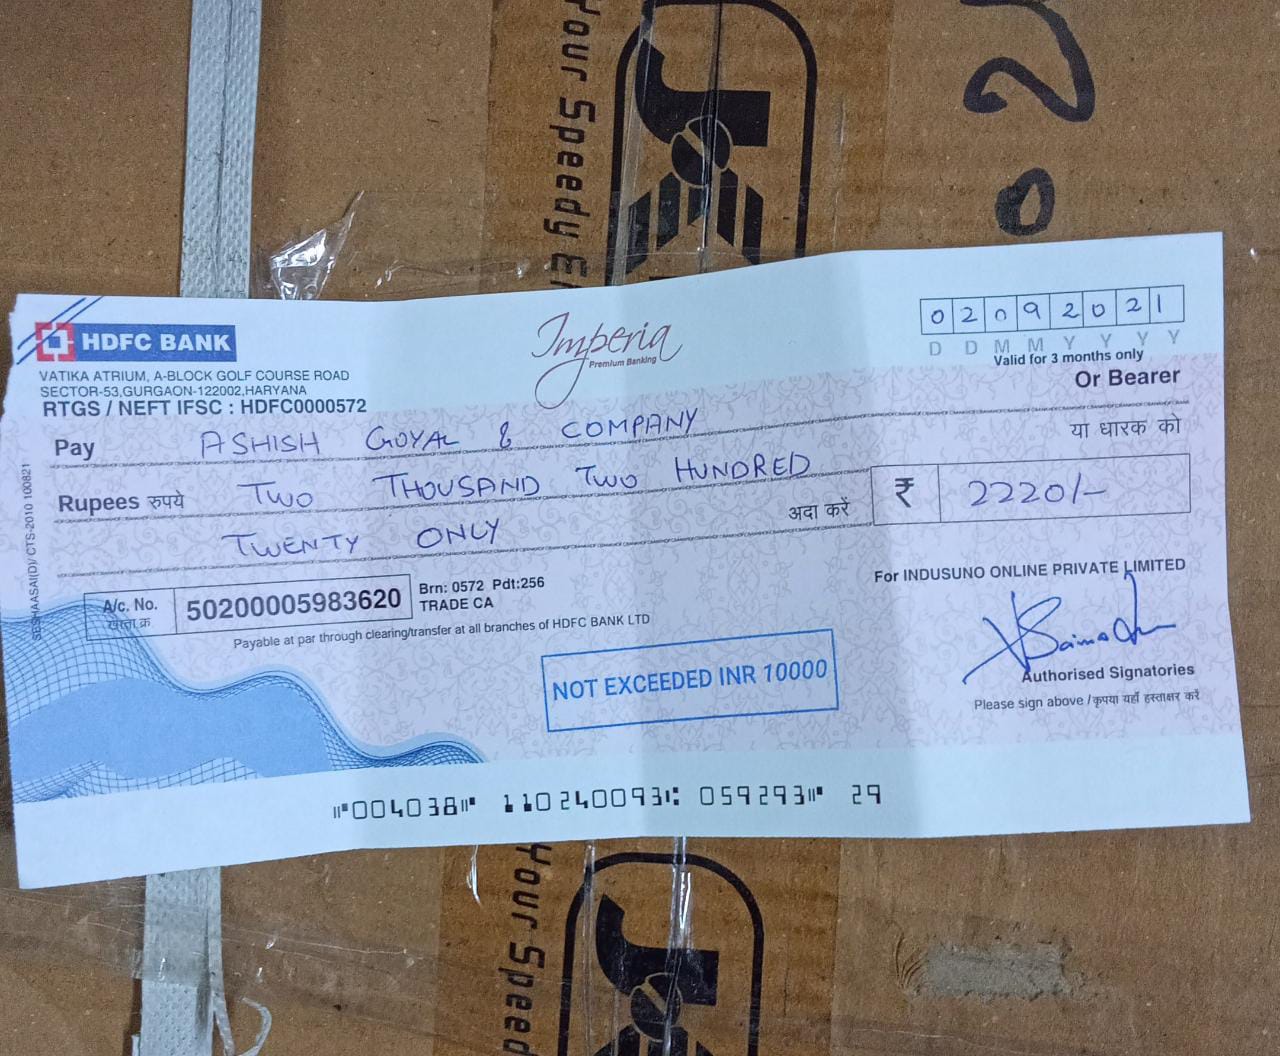 Your Speedy E
02
0
HDFC BANK
VATIKA ATRIUM, A-BLOCK GOLF COURSE ROAD
SECTOR-53,GURGAON-122002,HARYANA
RTGS / NEFT IFSC : HDFC0000572
Imperia
Premium Banking
02092021
D D M M Y Y Y Y
Valid for 3 months only
Or Bearer
या धारक को
Pay ASHISH GOYAL & COMPANY
Rupees रुपये TWO THOUSAND TWO HUNDRED
TWENTY ONLY
अदा करें
₹ 2220/-
SESHAASAI(D)/ CTS-2010 100821
A/c. No.
खाता क्र
50200005983620
Brn: 0572 Pdt:256
TRADE CA
Payable at par through clearing/transfer at all branches of HDFC BANK LTD
NOT EXCEEDED INR 10000
For INDUSUNO ONLINE PRIVATE LIMITED
Authorised Signatories
Please sign above / कृपया यहाँ हस्ताक्षर करें
⑈004038⑈ 110240093⑆ 059293⑈ 29
Your Speed